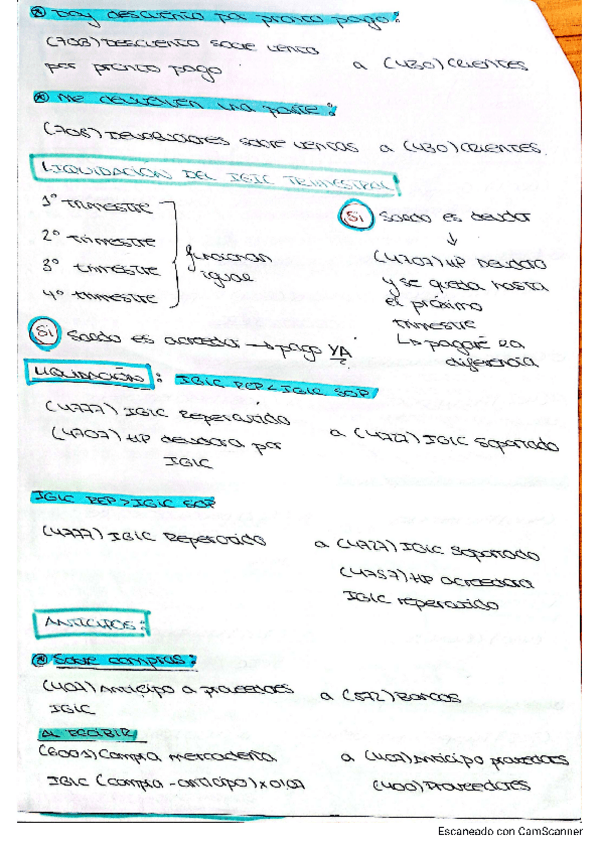 Doy descuento por pronto pago:
(706) Descuento sobre venta
por pronto pago a (430) Clientes
Me devuelven una parte:
(708) Devoluciones sobre ventas a (430) Clientes.
LIQUIDACIÓN DEL IGIC TRIMESTRAL
1º trimestre
2º trimestre
3º trimestre
4º trimestre
funcionan
igual
Si saldo es deudor
↓
(4707) HP deudora
y se queda hasta
el próximo
trimestre
↳ pagaré la
diferencia
Si saldo es acreedor → pago YA
LIQUIDACIÓN: IGIC REP < IGIC SOP
(4777) IGIC Repercutido
(4707) HP deudora por
IGIC
a (4727) IGIC Soportado
IGIC REP > IGIC SOP
(4777) IGIC Repercutido a (4727) IGIC Soportado
(4757) HP acreedora
IGIC repercutido
ANTICIPOS:
Sobre compras:
(407) Anticipo a proveedores a (572) Bancos
IGIC
AL RECIBIR
(600) Compra mercadería a (407) Anticipo proveedores
IGIC (compra - anticipo) x 0'07 (400) Proveedores
Escaneado con CamScanner